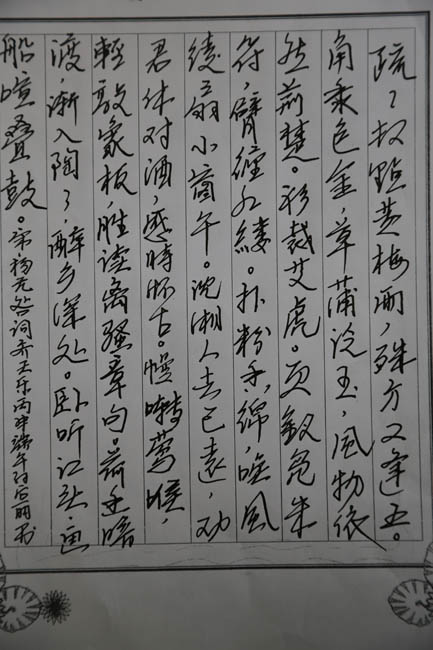 疏々数點黄梅雨,殊方又逢五。
角黍包金,草蒲泛玉,风物依
然荊楚。衫裁艾虎。更釵袅朱
符,臂纏红縷。扑粉香綿,唤风
绫扇小窗午。沈湘人去已遠,劝
君休对酒,感時怀古。慢囀莺喉,
輕敲象板,胜读离骚章句。荷香暗
渡,漸入陶々,醉乡深处。卧听江头,画
船喧叠鼓。宋杨无咎词齐天乐丙申端午后丽书